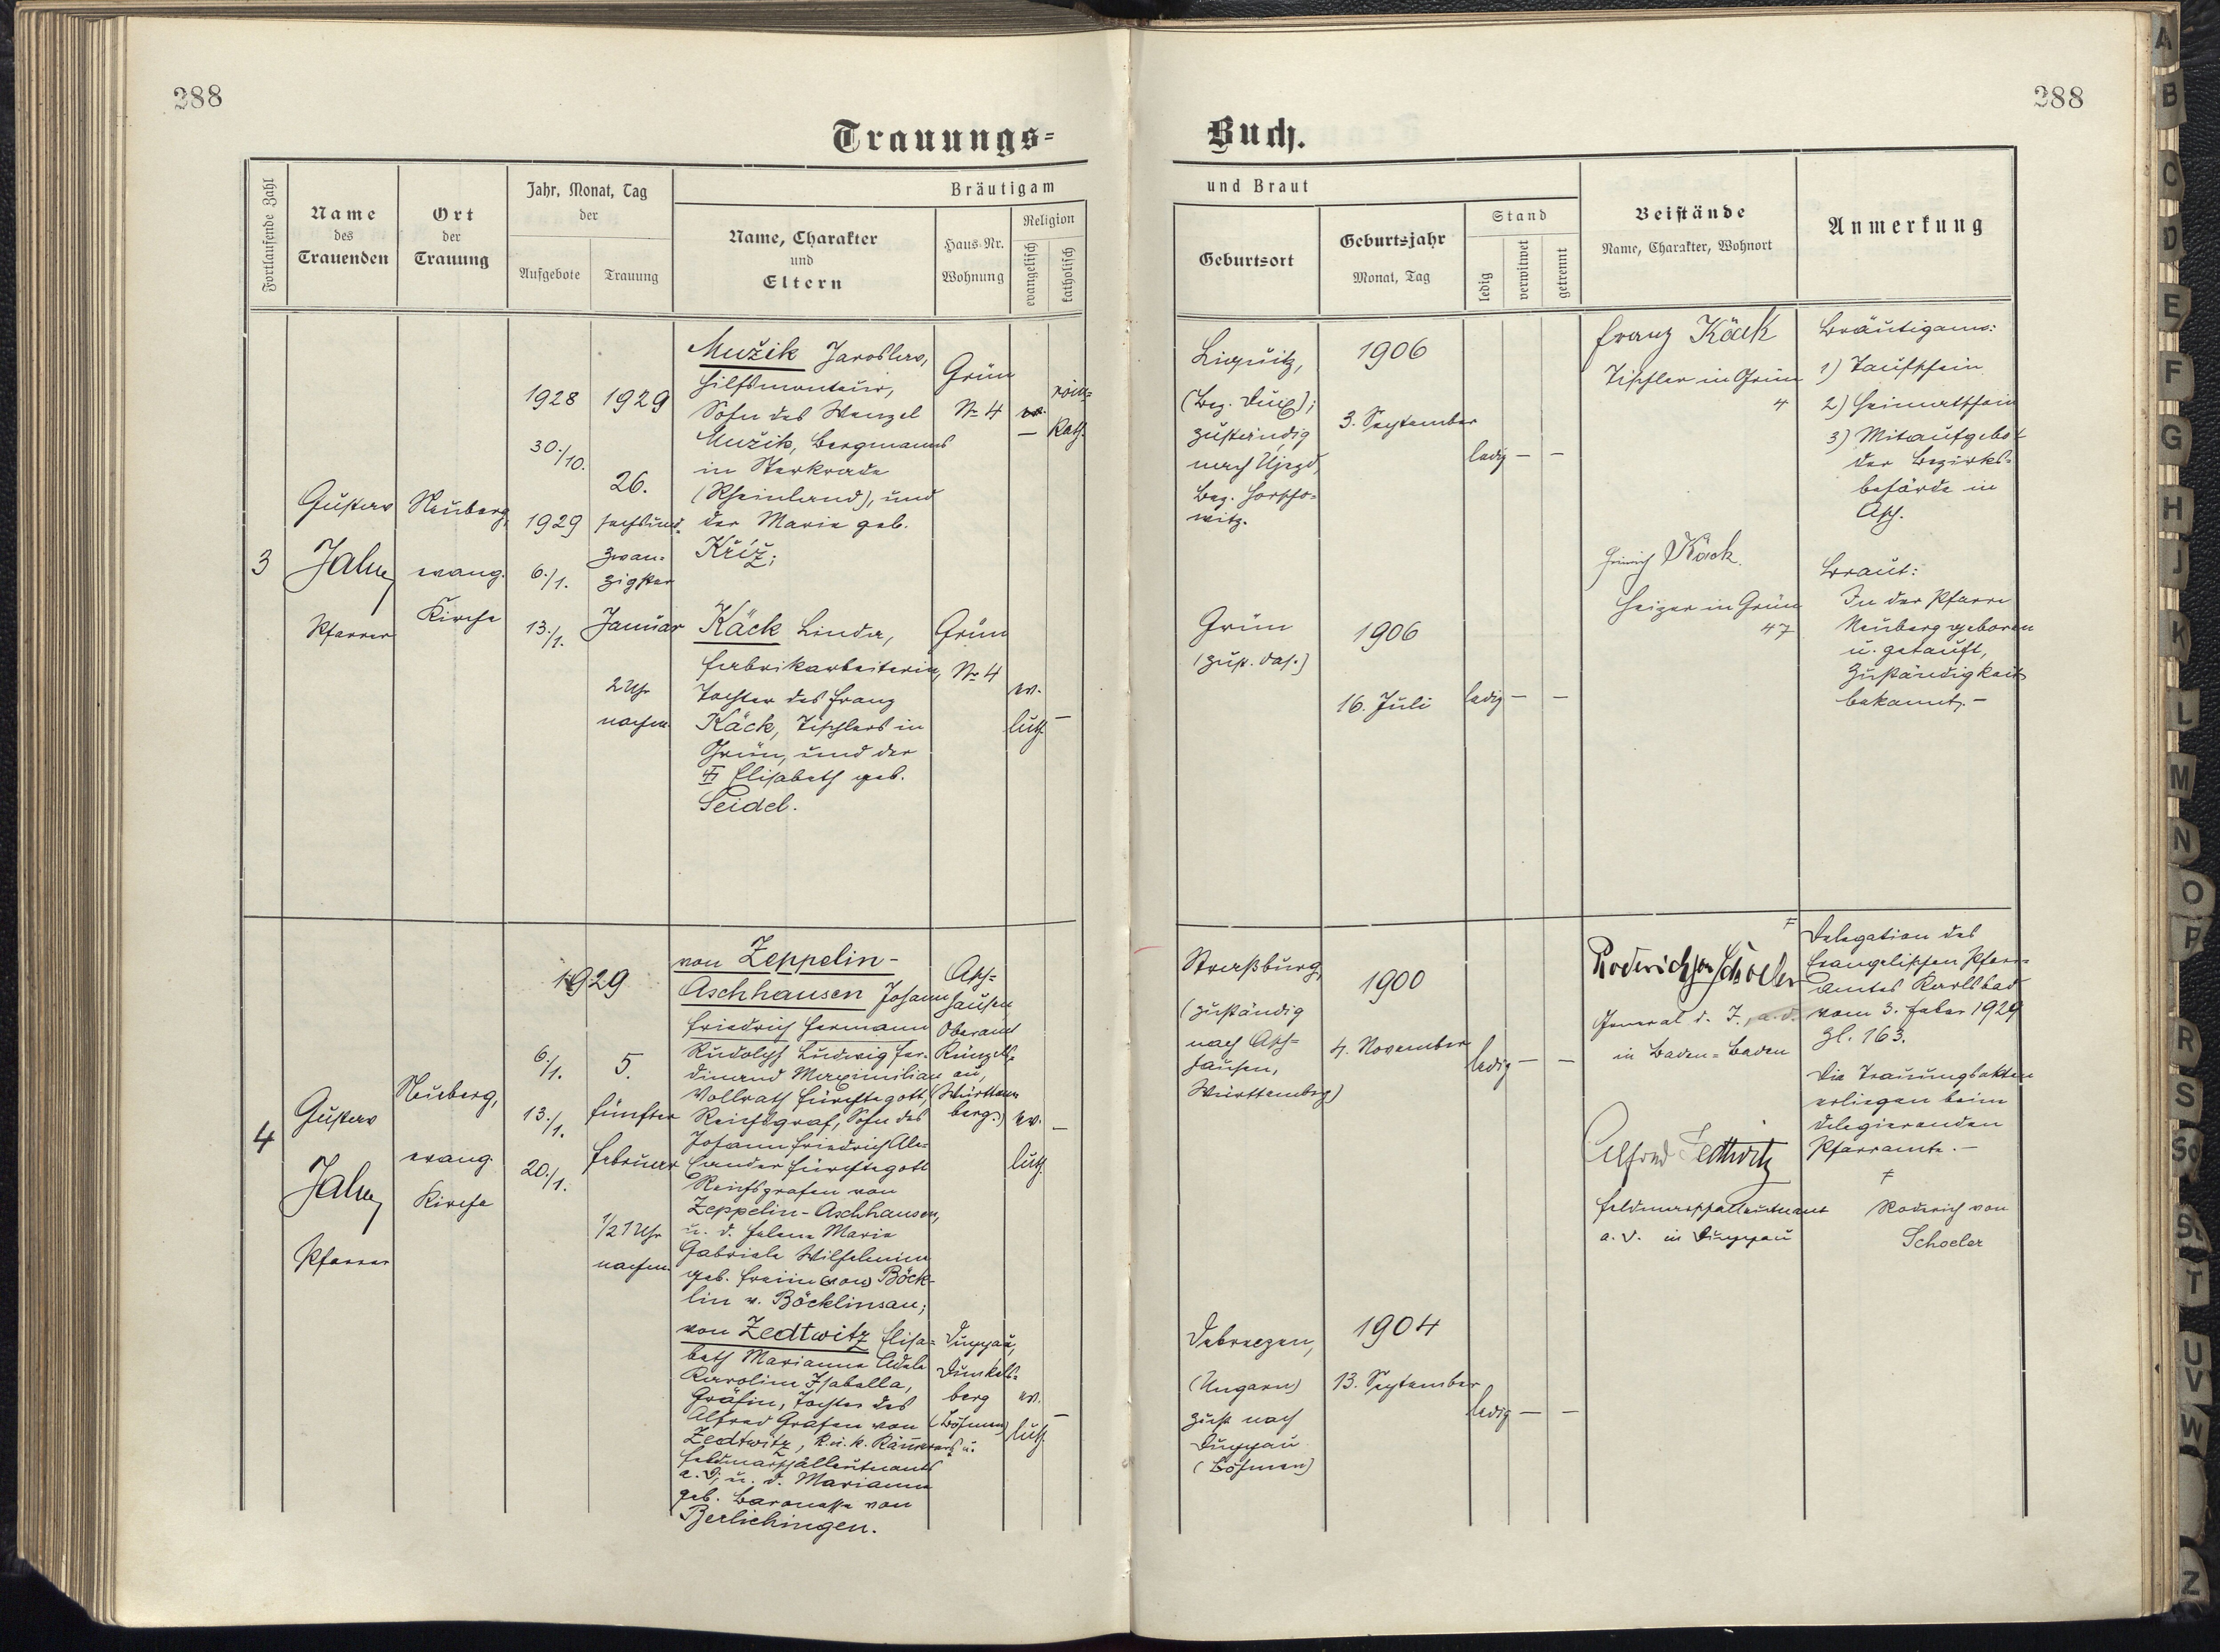 288
288
Trauungs=
Buch.
Fortlaufende Zahl
Name
des
Trauenden
Ort
der
Trauung
Jahr, Monat, Tag
der
Aufgebote
Trauung
Bräutigam
Name, Charakter
und
Eltern
Haus-Nr.
Wohnung
Religion
evangelisch
katholisch
und Braut
Geburtsort
Geburtsjahr
Monat, Tag
Stand
ledig
verwitwet
getrennt
Beistände
Name, Charakter, Wohnort
Anmerkung
3
Gustav
Jahn
Pfarrer
Neuberg,
evang.
Kirche
1928
30./10.
1929
6./1.
13./1.
1929
26.
sechsund-
zwan-
zigster
Januar
2 Uhr
nachm.
Mužik Jaroslav,
Hilfsmonteur,
Sohn des Wenzel
Mužik, Bergmanns
in Sterkrade
(Rheinland), und
der Marie geb.
Kříž;
Grün
№ 4
röm=
kath.
Käck Linda,
Fabrikarbeiterin,
Tochter des Franz
Käck, Tischlers in
Grün, und der
Elisabeth geb.
Seidel.
Grün
№ 4
ev.
luth.
Liquitz,
(Bez. Dux);
zuständig
nach Ujezd,
Bez. Horscho-
witz.
1906
3. September
ledig — —
Grün
(zust. das.)
1906
16. Juli
ledig — —
Franz Käck
Tischler in Grün
4
Heinrich Käck.
Heizer in Grün
47
Bräutigams:
1) Taufschein
2) Heimatschein
3) Mitaufgebot
der Bezirks-
behörde in
Asch.
Braut:
In der Pfarre
Neuberg geboren
u. getauft,
Zuständigkeit
bekannt. —
4
Gustav
Jahn
Pfarrer
Neuberg,
evang.
Kirche
1929
6./1.
13./1.
20./1.
5.
fünfter
Februar
1/2 1 Uhr
nachm.
von Zeppelin-
Aschhausen Johann
Friedrich Hermann
Rudolph Ludwig Fer-
dinand Maximilian
Vollrath Fürchtegott,
Reichsgraf, Sohn des
Johann Friedrich Ale-
xander Fürchtegott
Reichsgrafen von
Zeppelin-Aschhausen,
u. d. Helene Marie
Gabriele Wilhelmine
geb. Freiin von Böck-
lin v. Böcklinsau;
Asch-
hausen
Oberamt
Künzels-
au,
(Württem
berg)
ev.
luth.
von Zedtwitz Elisa-
beth Marianne Adele
Karoline Isabella,
Gräfin, Tochter des
Alfred Grafen von
Zedtwitz, k. u. k. Kämmerers u.
Feldmarschalleutnants
a. D., u. d. Marianne
geb. Baronesse von
Berlichingen.
Duppau,
Dunkels-
berg
(Böhmen)
ev.
luth.
Straßburg,
(zuständig
nach Asch-
hausen,
Württemberg)
1900
4. November
ledig — —
Debreczen,
(Ungarn)
zust. nach
Duppau
(Böhmen)
1904
13. September
ledig — —
Roderich von Schoeler
General d. I., a. d.
in Baden-Baden
Alfred Zedtwitz
Feldmarschalleutnant
a. D. in Duppau
Delegation des
Evangelischen Pfarr-
amtes Karlsbad
vom 3. Feber 1929
Zl. 163.
Die Trauungsakten
erliegen beim
delegierenden
Pfarramte. —
Roderich von
Schoeler
A
B
C
D
E
F
G
H
J
K
L
M
N
O
P
R
S
Sch
St
T
U
V
W
Z